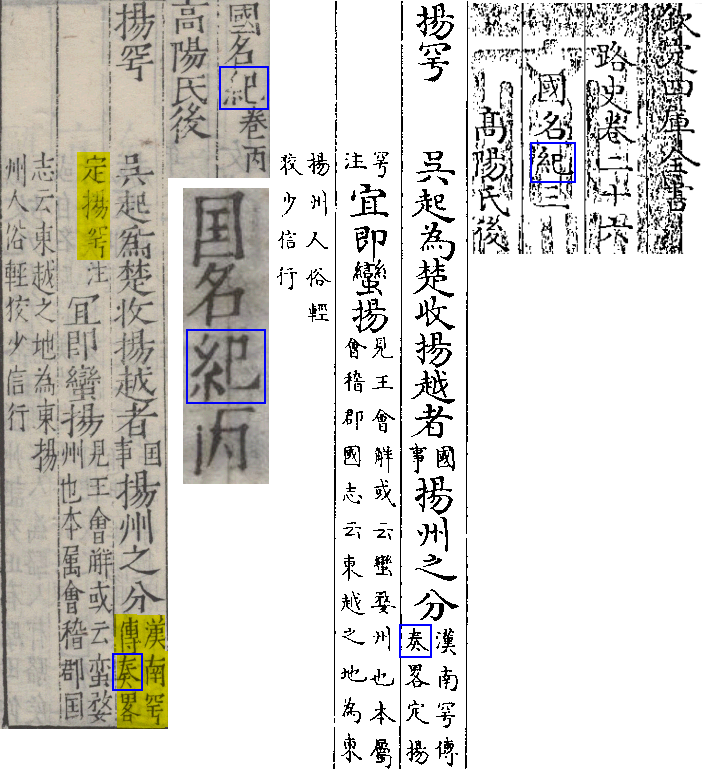 欽定四庫全書
路史卷二十六
國名紀三
髙陽氏後
揚雩
吳起為楚收揚越者國事揚州之分漢南雩傳奏畧定揚
雩注宜即蠻揚見王會觧或云蠻婺州也本屬會稽郡國志云東越之地為東
揚州人俗輕狡少信行
國名紀卷丙
高陽氏後
揚雩
吳起為楚收揚越者囯事揚州之分漢南雩傳奏畧
定揚雩注冝即蠻揚見王會觧或云蛮婺州也本属會稽郡囯
志云東越之地為東揚
州人俗輕狡少信行
囯名紀丙